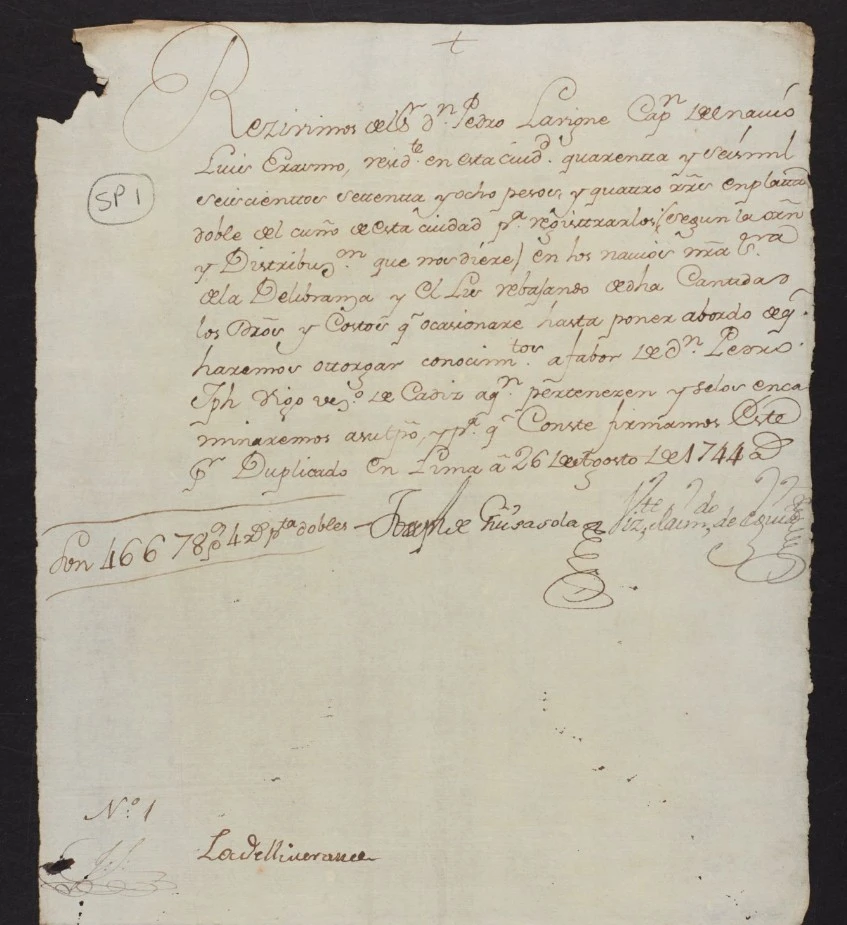 +
Rezivimos del Sr. dn. Pedro Lavigne Capn. de navio
Luis Erasmo, residte. en esta ciudd. quarentta y seis mil
seiscienttos settentta y ocho pesos, y quattro rrs. en platta
doble del cuño de esta ciudad pa. registtrarlos (segun la orn.
y Distribuzon. que nos diere) en los navios
SP1
de la Delibranza y El Luis rebajando de dha Cantidad
los Dros. y Costos q. ocasionare hasta poner abordo de q.
haremos ottorgar conocimtos. a fabor de Dn. Pedro
Jph Vigo vezo. de Cadiz a qn. pertenezen y se los enca
minaremos a su tpo., y pa. q. Conste firmamos Este
pr. Duplicado en Lima a 26 de Agosto de 1744 as.
Son 46678 ps. 4 rs. pta dobles
No. 1
La delliverance